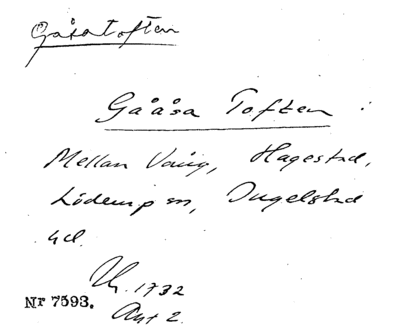 Gåsatoften
Gååsa Toften
Mellan Vång, Hagestad,
Löderup sn, Ingelstad
hd.
Lh. 1732
Nr 7593. Akt 2.